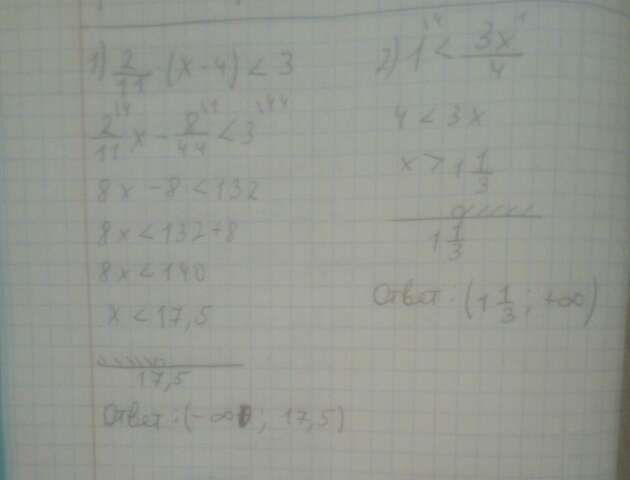 1) 2/11 (x - 4) < 3
2/11 x - 8/44 < 3
8x - 8 < 132
8x < 132 + 8
8x < 140
x < 17,5
17,5
Ответ: (-∞; 17,5)
2) 1 < 3x/4
4 < 3x
x > 1 1/3
1 1/3
Ответ: (1 1/3; +∞)